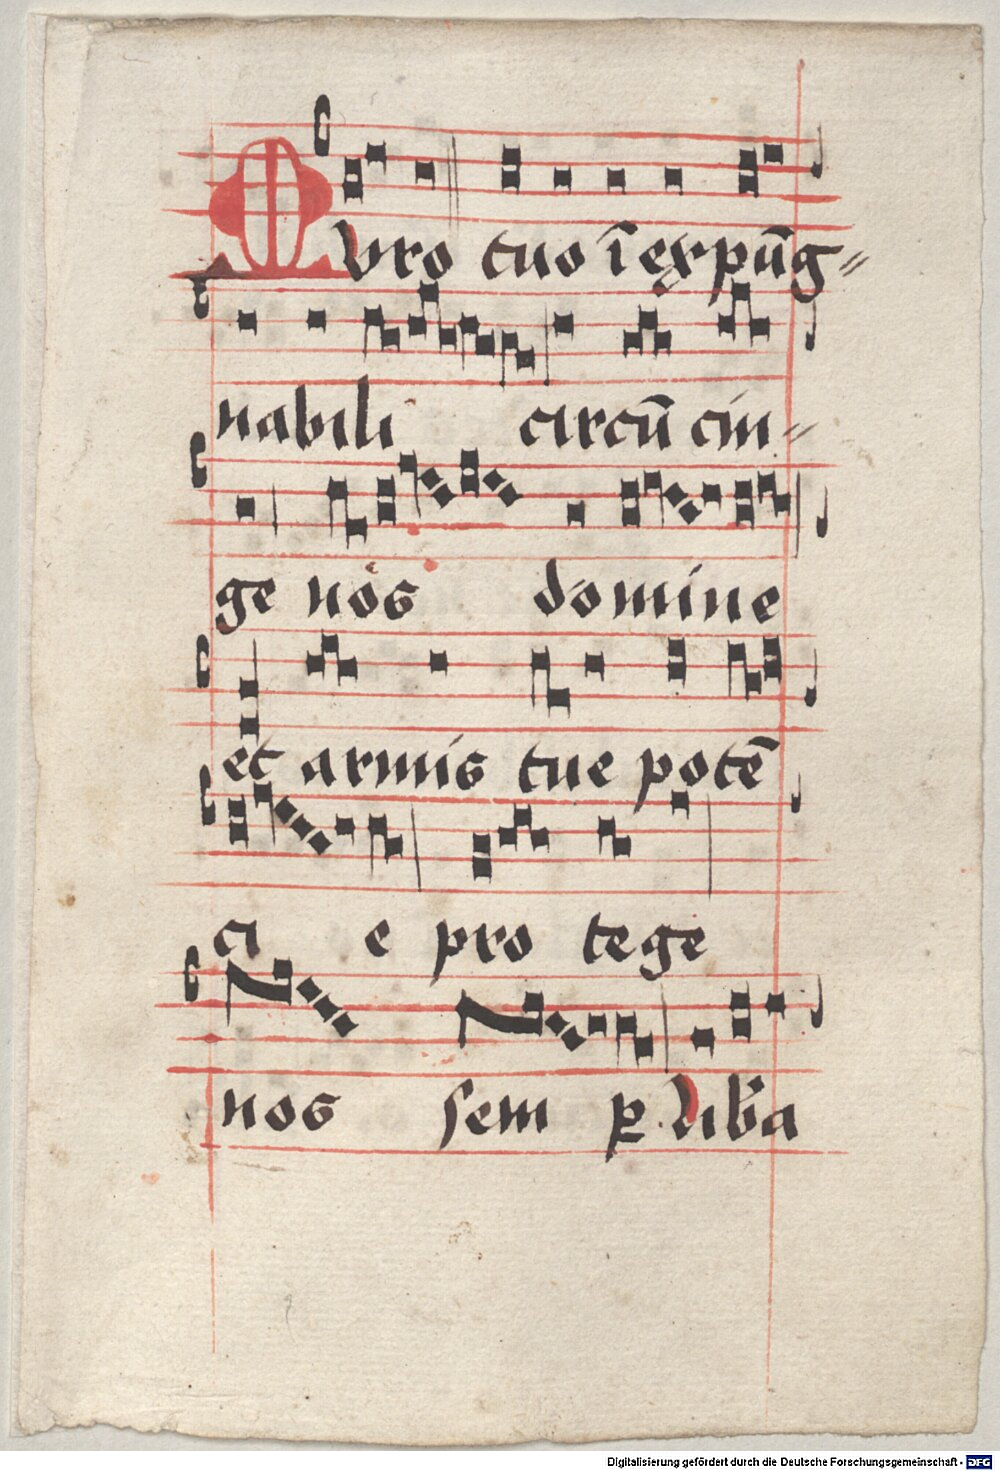 Muro tuo ī expūg=
nabili circū cin=
ge nos domine
et armis tue potē
ci e pro tege
nos sem ꝑ libͣa
Digitalisierung gefördert durch die Deutsche Forschungsgemeinschaft - DFG